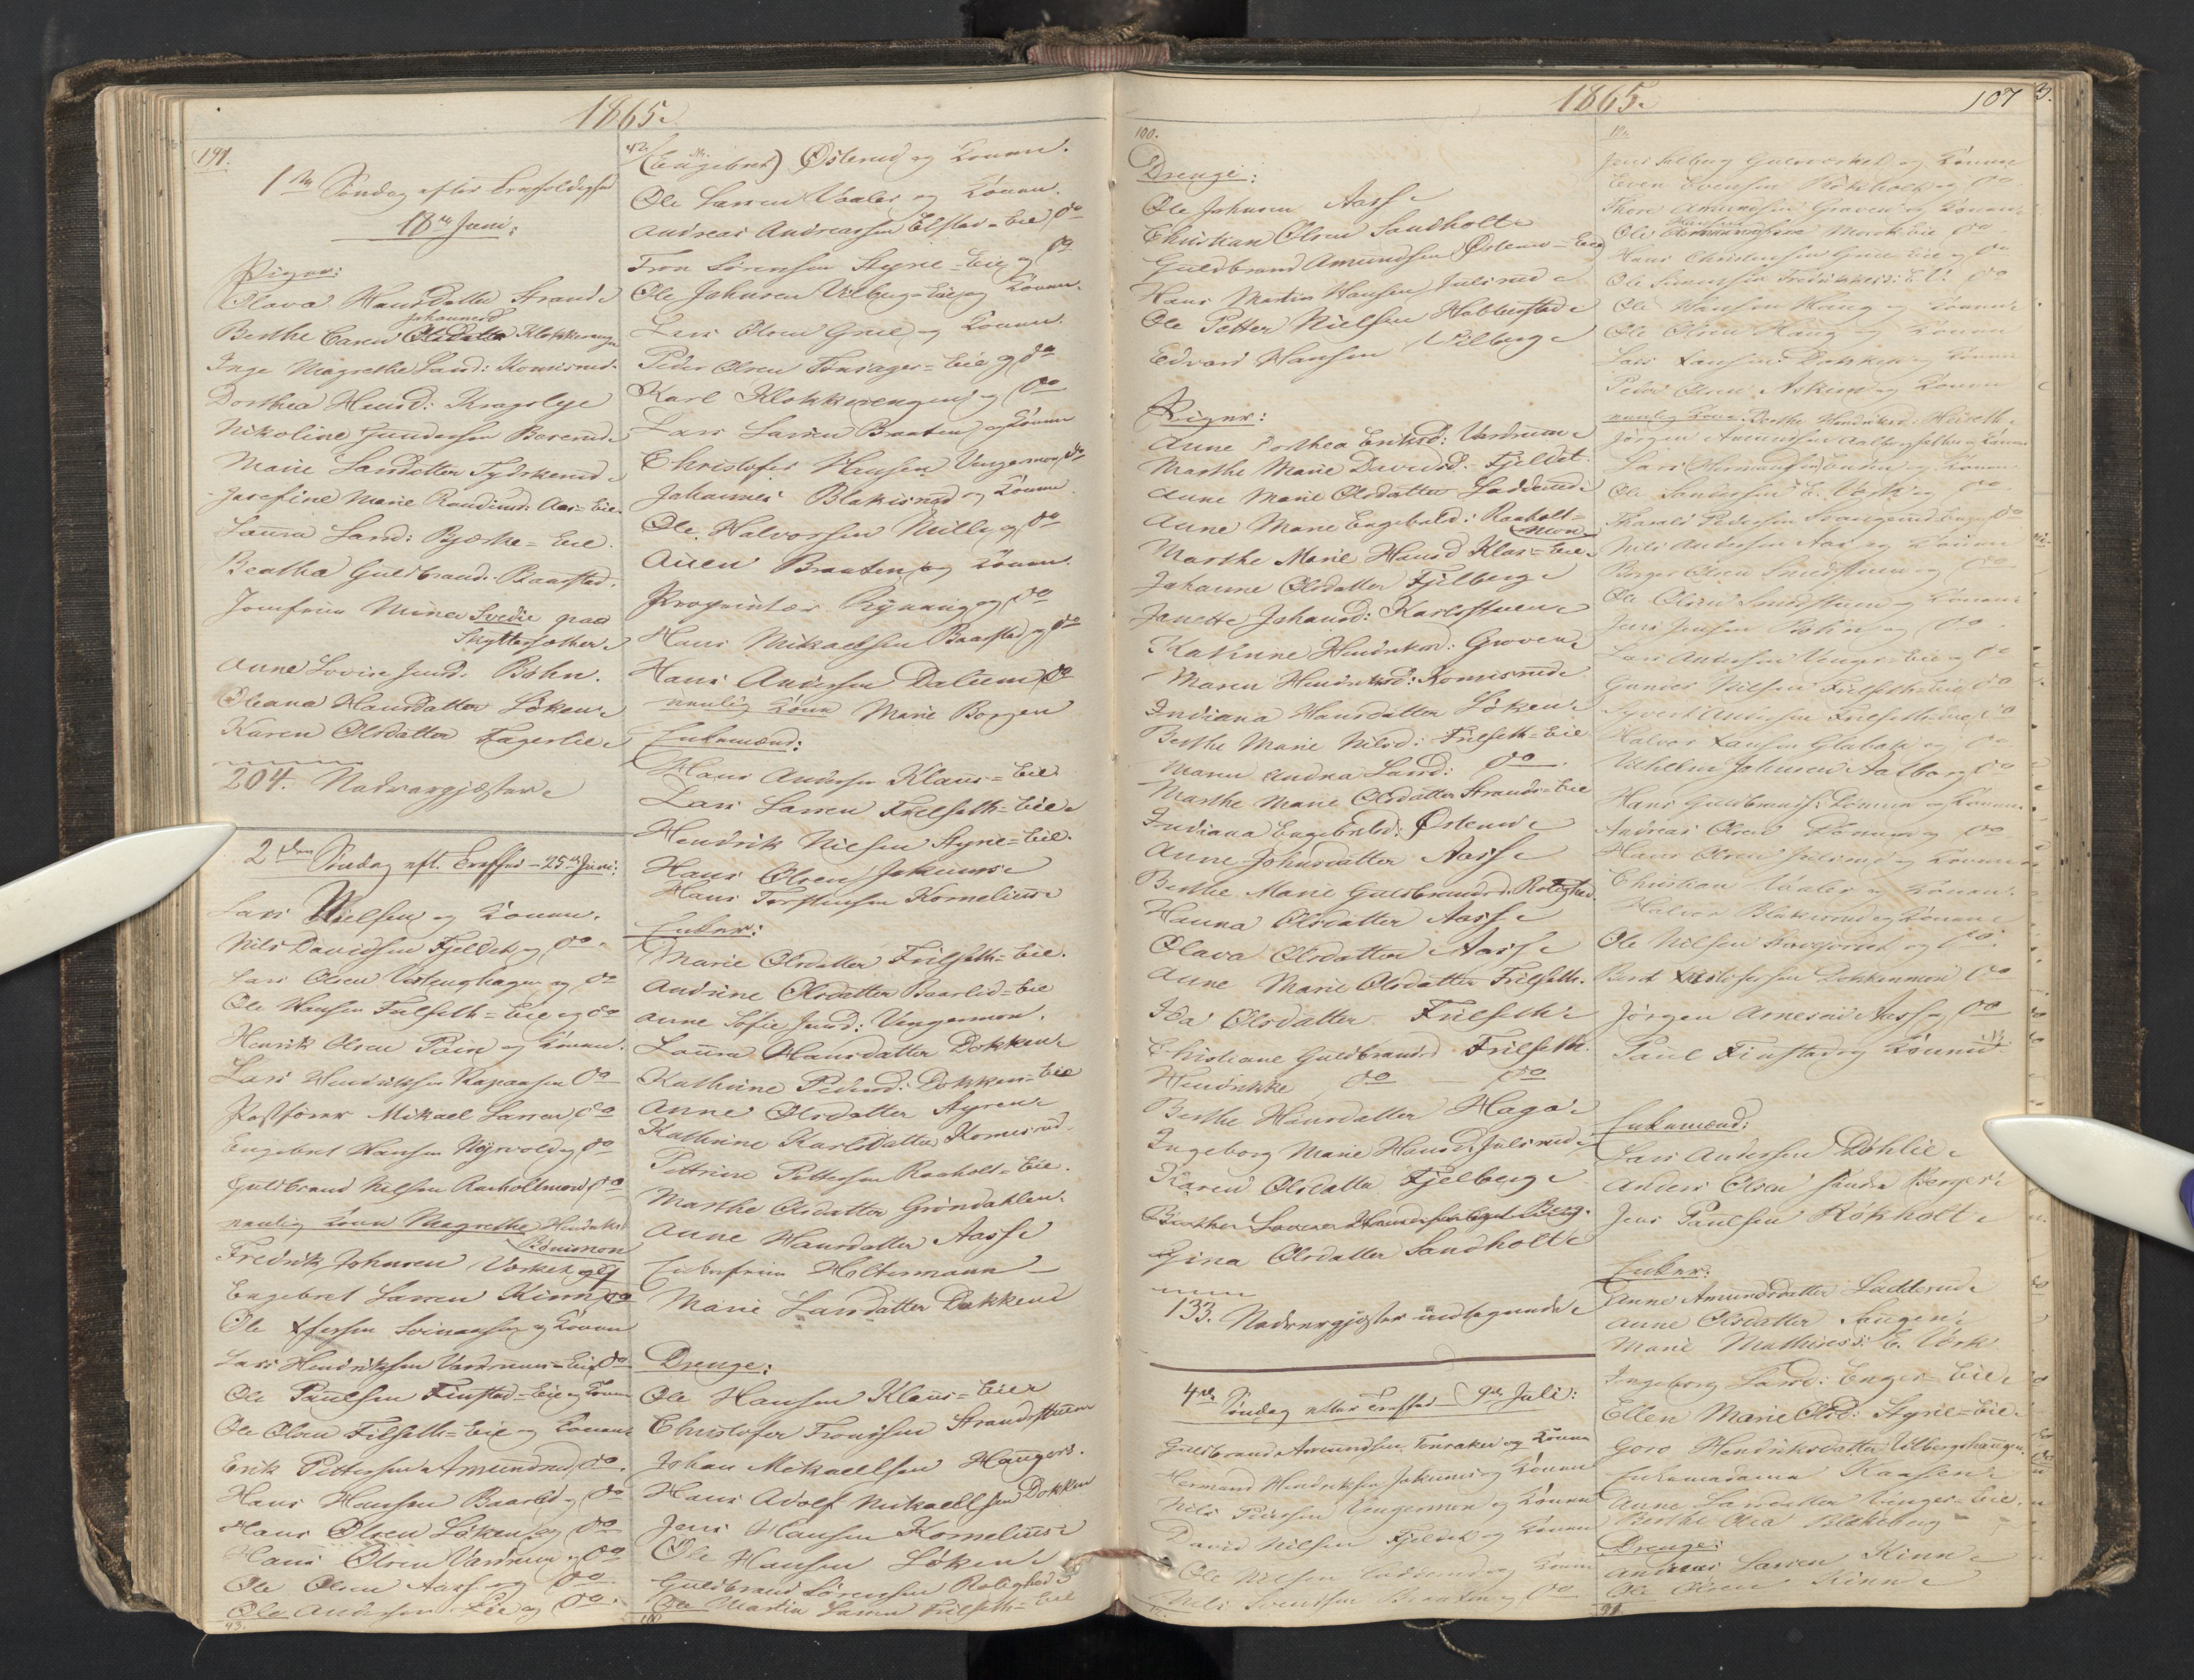 1865.
191.
1ste Søndag efter Trefoldighed
18de Juni:
Piger:
Olava Hansdatter Strand
Johannesd
Berthe Caren Olsdatter Klokkerenge
Inge Magrethe Larsd: Komisrud.
Dorthea Hansd: Kragslye
Nikoline Gundersen Berrud
Marie Larsdatter Tydskerud
Josefine Marie Aas-Eie.
Laura Larsd: Bjærke-Eie.
Beatha Guldbrandsd. Baarstad.
Jomfrue Mina Svedie paa
Skyttersæther
Anne Lovise Jensd. Bøhn.
Oleana Hansdatter Løken
Karen Olsdatter Fagerlie
204. Nadvergjæster
2den Søndag eft. Trefhed - 25de Juni:
Lars Nielsen og Konen.
Nils Davidsen Fjeldet og do.
Lars Olsen Vestenghagen og do
Ole Hansen Frilseth-Eie og do
Henrik Olsen og Konen.
Lars Hendriksen do
Postfører Mikael Larsen do
Engebret Hansen Nyvold og do
Guldbrand Nilsen Raaholtmoen do
nemlig Konen Magrethe Hendriksd
Fredrik Johnsen Værket og
Engebret Larsen Kinn do
Ole og Konen
Lars Hendriksen Vardrum-Eie do
Ole Paulsen Finstad-Eie og Konen
Ole Olsen Filseth-Eie og Konen
Erik Pettersen Amundrud do.
Hans Hansen Baarlid og do
Hans Olsen Løken og do
Hans Olsen Vardrum og do
Ole Olsen Aass og do
Ole Andersen og do.
43.
42
(Engebret) Østerud og Konen.
Ole Larsen Vaaler og Konen.
Andreas Andreassen Elstad-Eie do
Tron Sørensen Styrie-Eie og do
Ole Johnsen Vilberg-Eie og Konen.
Lars Olsen Grue og Konen.
Peder Olsen Tonsager-Eie og do
Karl Klokkerengen og do
Lars Larsen Braaten og Konen
Christofer Hansen Vengermoen do
Johannes Blakisrud og Konen.
Ole Halvorsen Mille og do
Auen Braaten og Konen.
Proprietær Rynning og do
Hans Mikaelsen Baarstad og do
Hans Andersen Dalum do
nemlig Kone Marie Borgen
Enkemænd:
Hans Andersen Klaus-Eie
Lars Larsen Frilseth-Eie
Hendrik Nielsen Styrie-Eie.
Hans Olsen Jokums
Hans Torstensen Kornelius
Enker:
Marie Olsdatter Frilseth-Eie.
Andrine Olsdatter Baarlid-Eie
Anne Sofie Jensd: Vengermoen.
Laura Hansdatter Dokken
Kathrine Pedersd: Dokken-Eie
Anne Olsdatter Styren
Kathrine Karlsdatter Komisrud
Pettrine Pettersen Raaholt-Eie.
Marthe Olsdatter Grøndahlen.
Anne Hansdatter Aass
Enkefrue Holtermann
Marie Larsdatter Dokken
Drenge:
Ole Hansen Klaus-Eier
Christofer Tronsen Strandstuen
Johan Mikaelsen Haugers.
Hans Adolf Mikaelsen Dokken
Jens Hansen Kornelius
Ole Hansen Løken
Guldbrand Sørensen Rolighed
Ole Martin Larsen Frilseth-Eie
100
1865.
107
100.
Drenge:
Ole Johnsen Aass
Christian Olsen Sandholt
Guldbrand Amundsen Østerud-Eie
Hans Martin Hansen Julsrud
Ole Petter Nielsen Habberstad
Edvard Hansen Vilberg
Piger:
Anne Dorthea Eriksd: Vardrum
Marthe Marie Davidsd. Fjeldet.
Anne Marie Olsdatter Ladderud
Anne Marie Engebretsd: Raaholt-
moen
Marthe Marie Hansd Klas-Eie
Johanne Olsdatter Fjelberg
Janette Johansd: Karlsstuen
Kathrine Hendriksd: Groven
Maren Hendriksd: Komisrud
Indiana Hansdatter Løken
Berthe Marie Nilsd: Frilseth-Eie
Maren Andrea Larsd: do
Marthe Marie Olsdatter Strands-Eie
Indiana Engebretsd: Østerud
Anne Johnsdatter Aass
Berthe Marie Guldbrandsd: Rolighed.
Hanna Olsdatter Aass
Olava Olsdatter Aass
Anne Marie Olsdatter Frilseth.
Ida Olsdatter Frilseth
Christiane Guldbrandsd Frilseth.
Hendrikke do do
Berthe Hansdatter Haga
Ingeborg Marie Hansd: Julsrud
Karen Olsdatter Fjelberg
Gina Olsdatter Sandholt
133. Nadvergjæster indtegnede
4de Søndag efter Trefhed 9de Juli:
Guldbrand Amundsen Tonsaker og Konen
Hermand Hendriksen Jokums og Konen
Nils Pedersen Vengermoen og Konen
David Nilsen Fjeldet og Konen
Ole Nilsen Ladderud og Konen
Nils Svendsen Braaten og do
Jens Solberg Guldværket og Konen
Even Evensen Rökholt og do
Thore Amundsen Groven og Konen.
Hansen
Ole Amundsen Morok Eie do
Hans Christensen Grue Eie og do
Ole Simensen do
Ole Hansen Haug og Konen
Ole Olsen Haug og Konen
Lars Larsen Dokken og Konen
Peder Olsen Asken og Konen
nemlig Kone: Berthe Hendriksd:
Jørgen Amundsen og Konen
Lars og Konen
Ole Andersen E. Værk og do
Nils Andersen Aas og Konen
Borger Olsen Smedstuen og do
Ole Olsen Smedstuen og Konen
Jens Jensen Bøhn og do.
Lars Andersen Venger-Eie og do
Gunder Nilsen Frilseth Eie do
Syvert Andersen Frilseth Eie do
Halvor Larsen Glabak og do
Vilhelm Johnsen Aalborg do
Hans Guldbrands: Dønnum og Konen
Andreas Olsen Dønnum og do
Hans Olsen Julsrud og Konen
Christian Vaaler og Konen.
Halvor Blakisrud og Konen
Ole Nilsen og do.
Bent Dokkenmoen do
Jørgen Arnesen Aass og do
Paul Finstad og Konen
Enkemænd:
Lars Andersen Døhlie
Anders Olsen Søndre Berger
Jens Paulsen Rökholt
Enker:
Anne Amundsdatter Ladderud
Anne Olsdatter Saugen
Marie Mathiesd: E. Værk
Ingeborg Larsd: Enger-Eie
Ellen Marie Olsd: Styrie-Eie.
Goro Hendriksdatter Vilbergshaugen.
Enkemadame Kaasen
Anne Larsdatter Venger-Eie.
Berthe Olea Blakeberg
Drenge:
Andreas Larsen Kinn
Ole Olsen Kinn
91